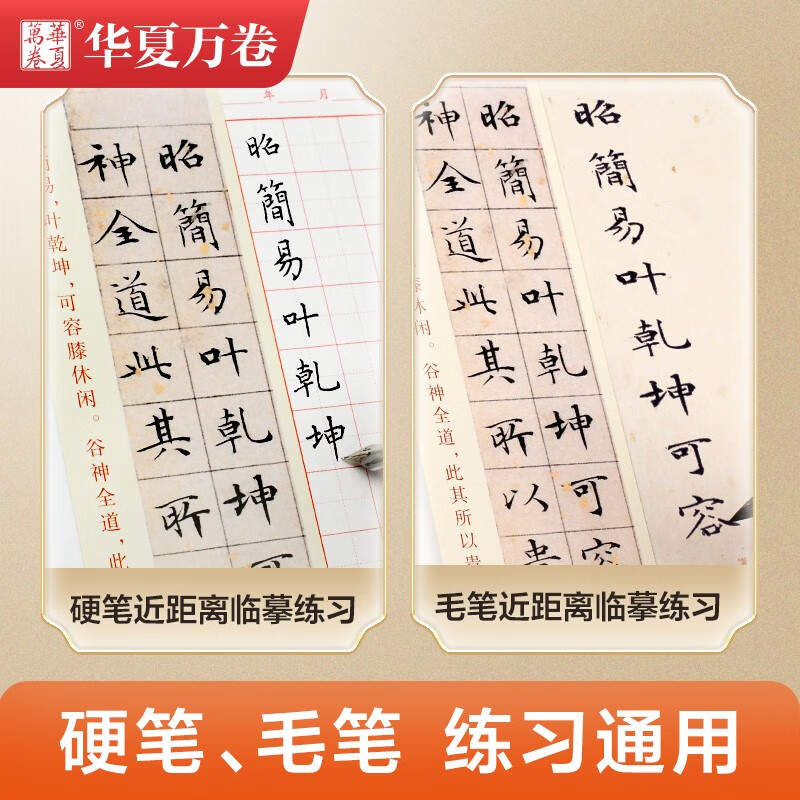 華夏萬卷® 华夏万卷
年 月
简易，叶乾坤，可容膝休闲。谷神全道，此
昭簡易叶乾坤可
神全道此其所
昭簡易叶乾坤
硬笔近距离临摹练习
膝休闲。谷神全道，此其所以贵
昭簡易叶乾坤可容
神全道此其所以貴
昭簡易叶乾坤可容
毛笔近距离临摹练习
硬笔、毛笔 练习通用